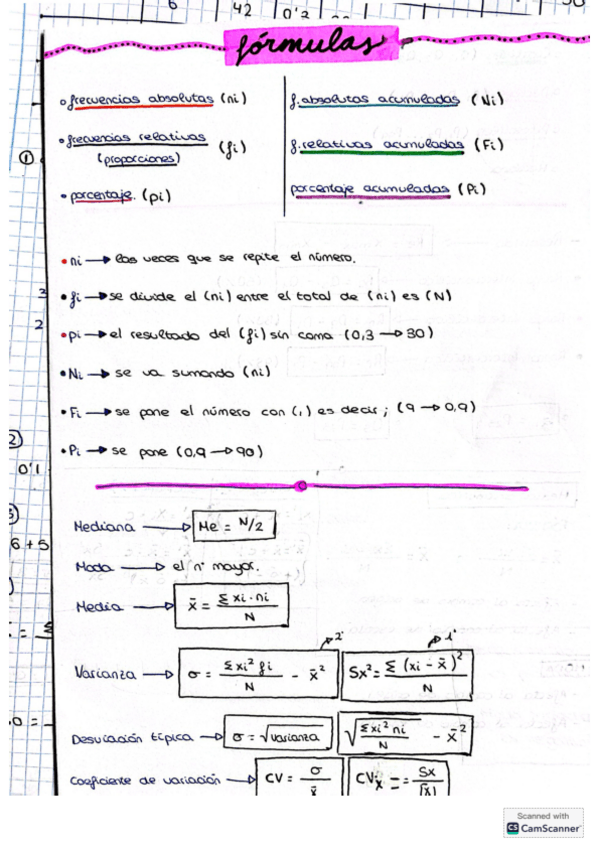 6 42 0'2
fórmulas
frecuencias absolutas (ni)
f.absolutas acumuladas (Ni)
frecuencias relativas (proporciones) (fi)
f.relativas acumuladas (Fi)
①
porcentaje. (pi)
porcentaje acumuladas (Pi)
• ni → las veces que se repite el número.
3
• fi → se divide el (ni) entre el total de (ni) es (N)
2
• pi → el resultado del (fi) sin coma (0,3 → 30)
• Ni → se va sumando (ni)
• Fi → se pone el número con (,) es decir; (9 → 0,9)
• Pi → se pone (0,9 → 90)
0'1
Mediana → Me = N/2
6+5
Moda → el nº mayor.
Media → x̄ = Σ xi · ni / N
Varianza → σ = Σxi² fi / N - x̄² Sx² = Σ (xi - x̄)² / N
Desviación típica → σ = √varianza √Σxi² ni / N - x̄²
Coeficiente de variación → CV = σ / x̄ CVx = Sx / |x̄|
Scanned with
CS CamScanner